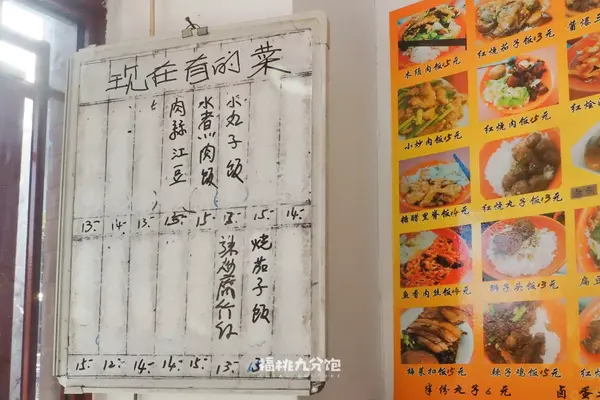 现在有的菜
肉絲江豆
水煮肉饭
小丸子饭
13.- 14.- 13.- 15.- 15.- 15.- 14.-
烧茄子饭
15.- 12.- 14.- 14.- 15.- 13.-
木须肉饭15元
红烧茄子饭13元
小炒肉饭15元
红烧肉饭15元
糖醋里脊饭14元
红烧丸子饭13元
鱼香肉丝饭14元
狮子头饭13元
梅菜扣饭15元
辣子鸡饭15元
半份丸子6元
卤蛋
福桃九分饱